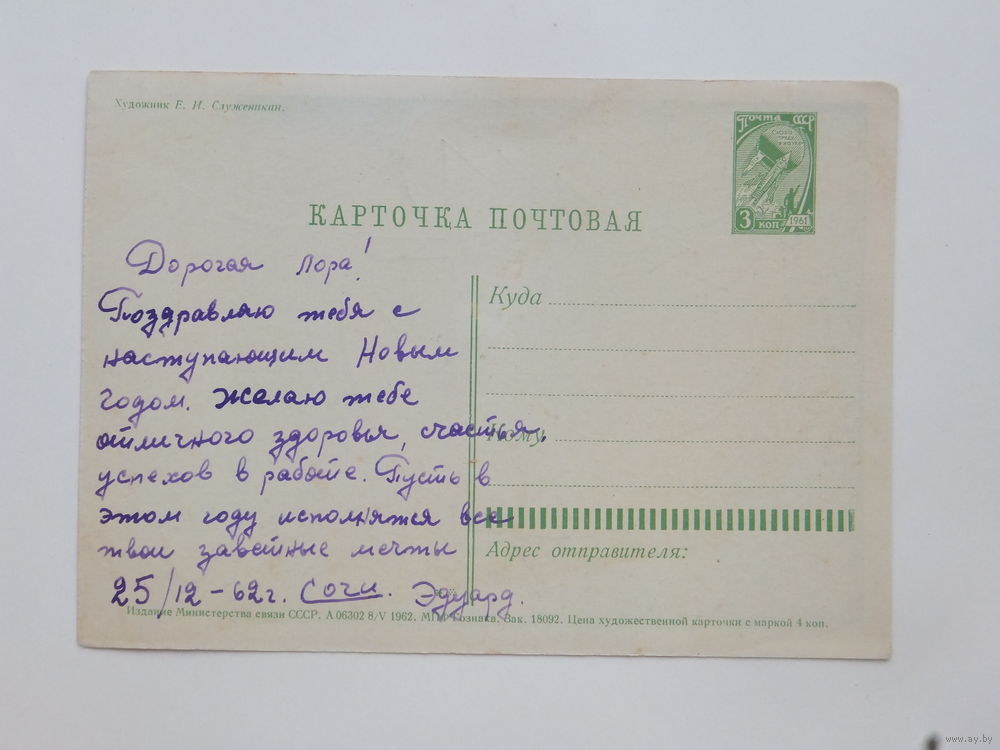 Художник Е. И. Служеникин.
Почта СССР
СЛАВА ТРУДУ И НАУКЕ
3 коп 1961
КАРТОЧКА ПОЧТОВАЯ
Дорогая Лора!
Поздравляю тебя с
наступающим Новым
годом. Желаю тебе
отличного здоровья, счастья,
успехов в работе. Пусть в
этом году исполнятся все
твои заветные мечты
25/12-62г. Сочи. Эдуард.
Куда
Кому
Адрес отправителя:
Издание Министерства связи СССР. А 06302 8/V 1962. Гознака. Зак. 18092. Цена художественной карточки с маркой 4 коп.
www.ay.by